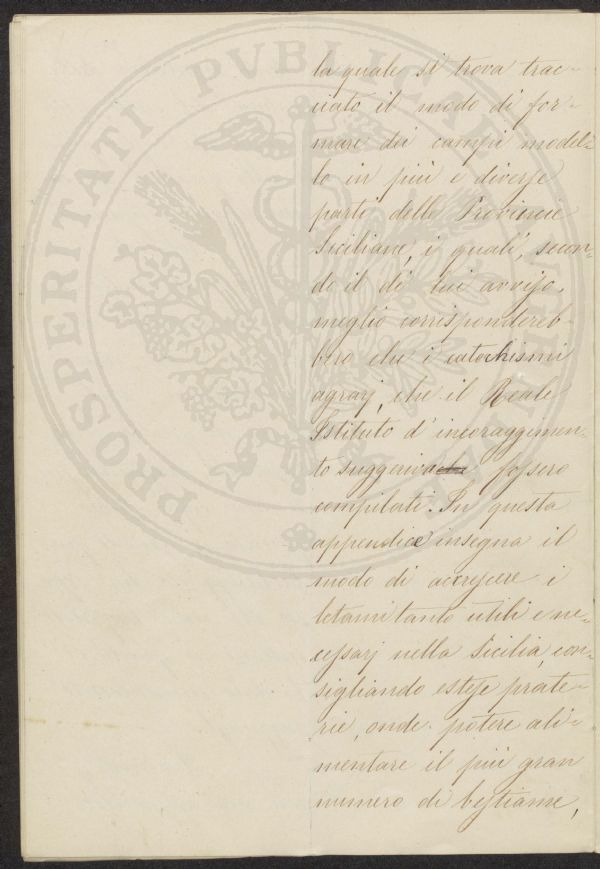 PROSPERITATI PVBLICAE AVGENDAE
la quale si trova trac-
ciato il modo di for-
mare dei campi model-
lo in più e diverse
parti delle Provincie
Siciliane, i quali, secon-
do il di lui avviso,
meglio corrispondereb-
bero che i catechismi
agrarj, che il Reale
Istituto d'incoraggimen-
to suggeriva fossero
compilati. In questa
appendice insegna il
modo di accrescere i
letami tanto utili e ne-
cessarj nella Sicilia, con-
sigliando estese prate-
rie, onde potere ali-
mentare il più gran
numero di bestiame,